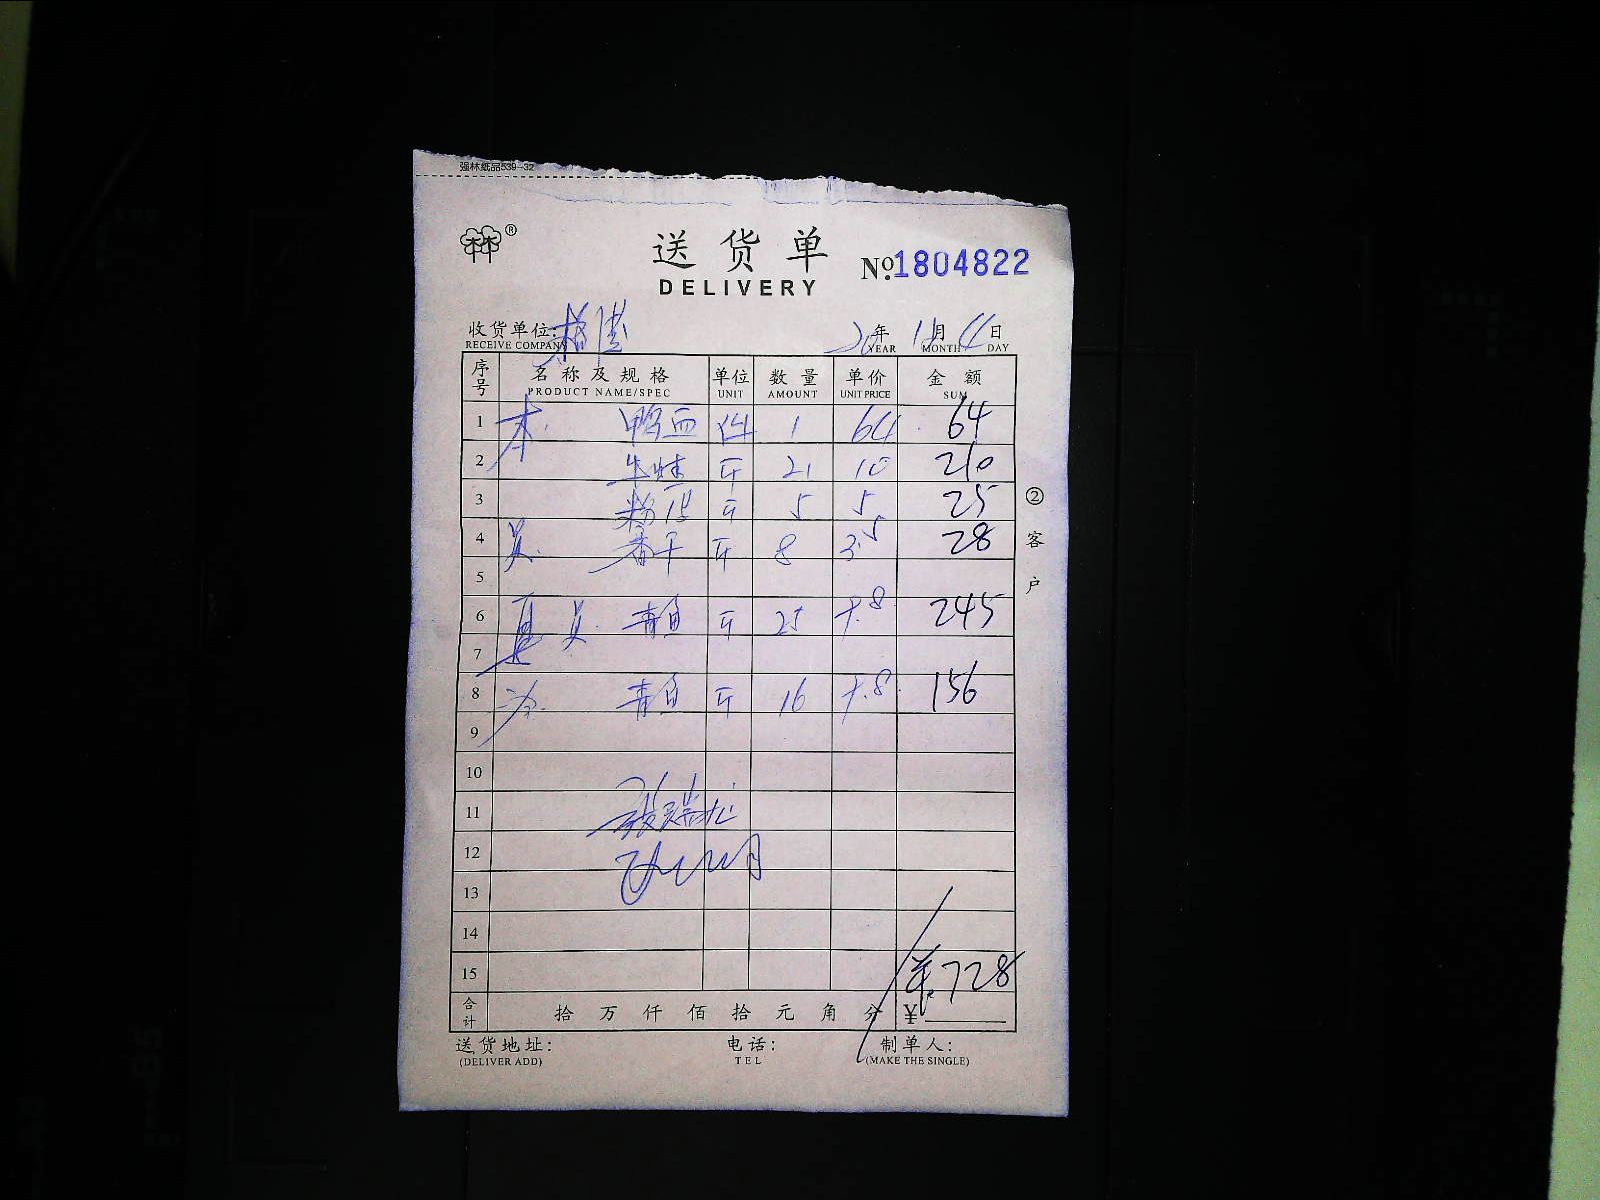 强林纸品539-32
®
送货单 №1804822
DELIVERY
收货单位: 20年 11月 日
RECEIVE COMPANY YEAR MONTH DAY
序号 名称及规格 单位 数量 单价 金额
PRODUCT NAME/SPEC UNIT AMOUNT UNIT PRICE SUM
1 本. 鸭血 件 1 64 64
2 牛蛙 斤 21 10 210
3 粉皮 斤 5 5 25
4 香干 斤 8 3.5 28
5
6 青鱼 斤 25 9.8 245
7
8 青鱼 斤 16 9.8 156
9
10
11
12
13
14
15 728
合计 拾 万 仟 佰 拾 元 角 分 ¥
② 客户
送货地址: 电话: 制单人:
(DELIVER ADD) TEL (MAKE THE SINGLE)